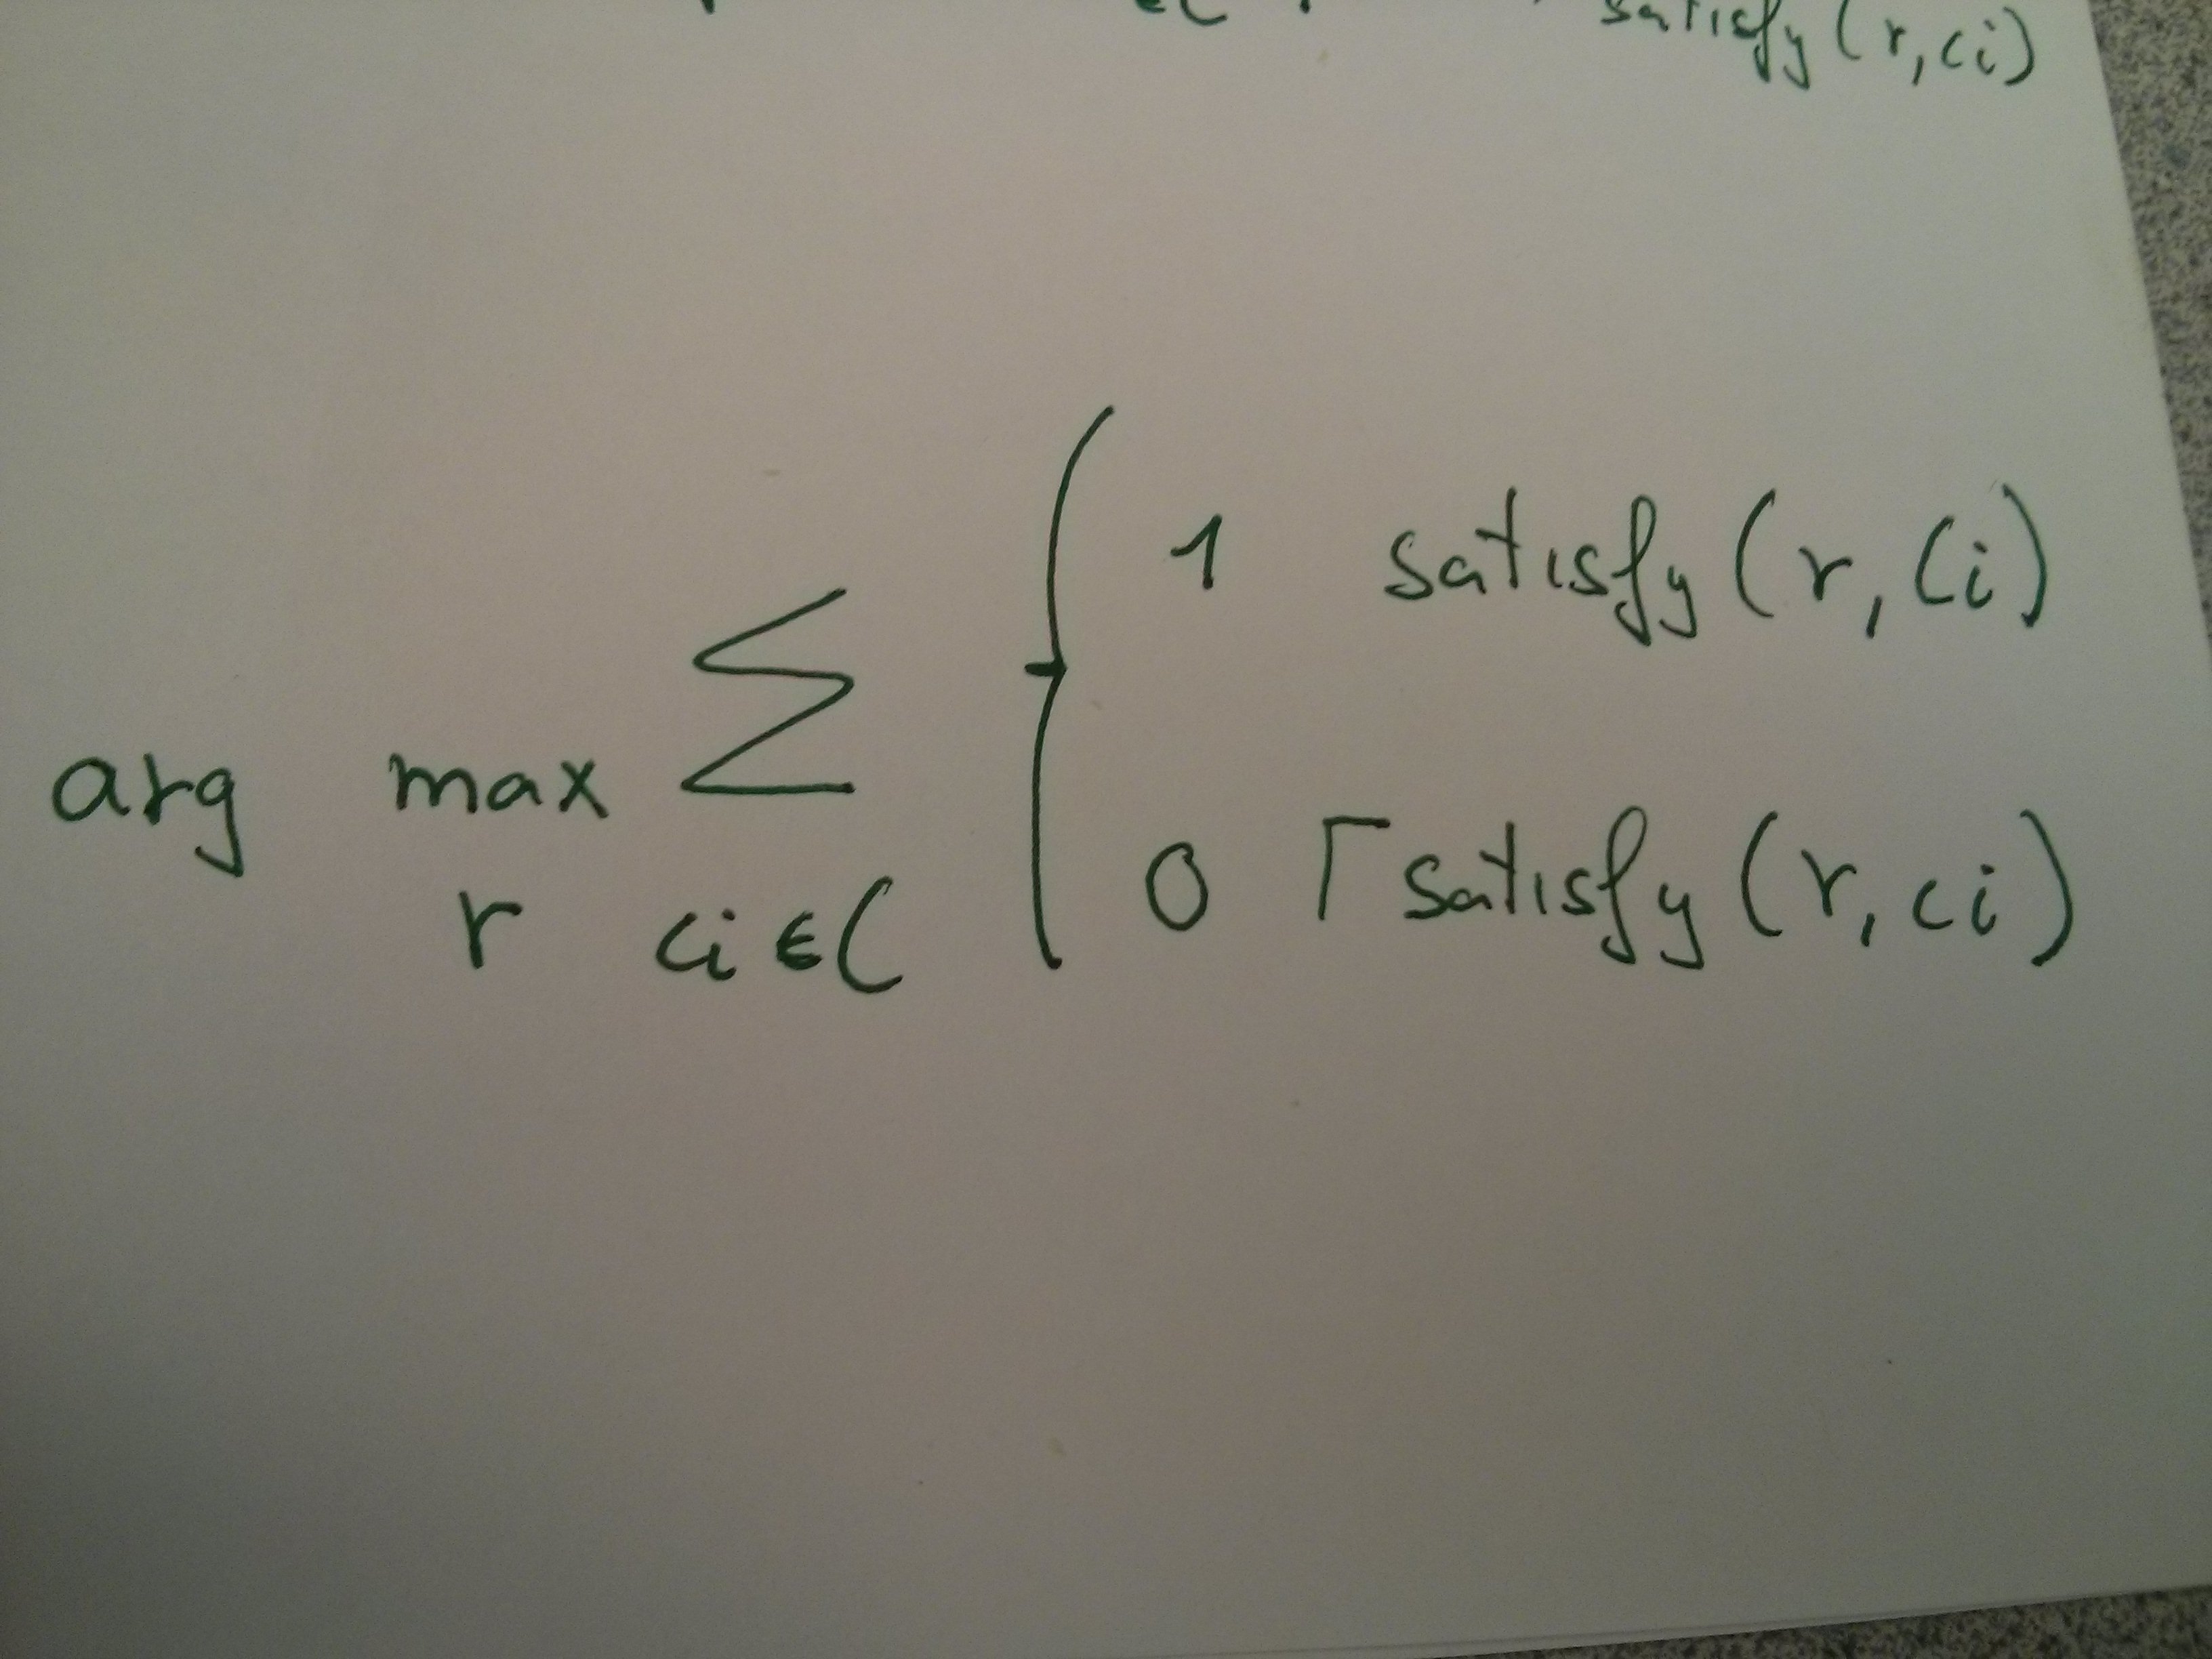 ∈C satisfy(r,ci)
arg max ∑ { 1 satisfy(r,Ci)
r ci∈C 0 ⌈satisfy(r,ci)